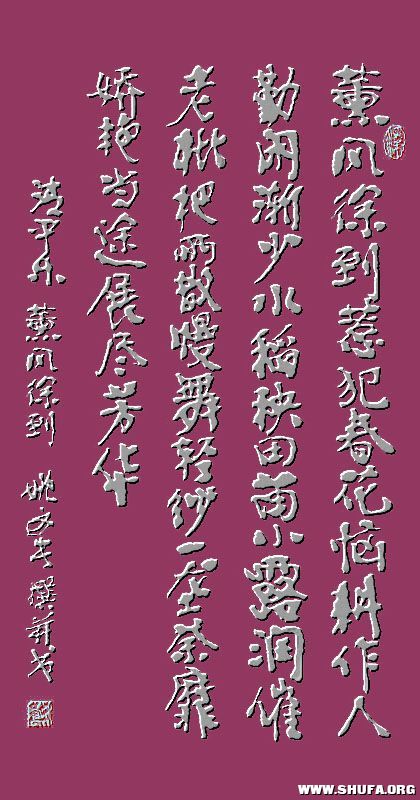 薰风徐到惹犯春花恼耕作人
勤闲渐少水稻秧田雨小露润催
老枇杷慢舞轻纱一荼靡
娇艳当途展尽芳华
清平乐 薰风徐到 姚撰并书
WWW.SHUFA.ORG